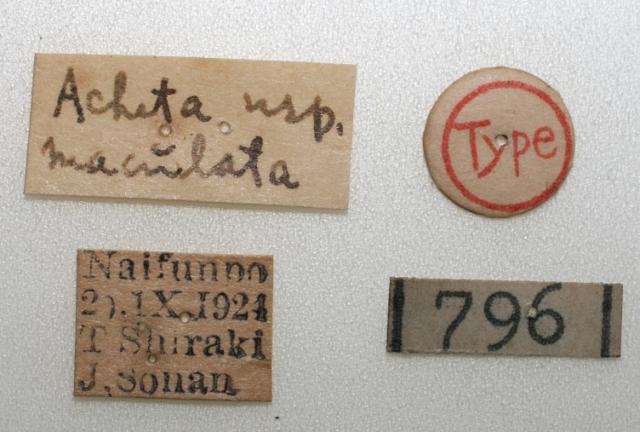 Acheta nsp.
maculata
Type
Naifunpo
IX.1921
T Shiraki
J, Sonan
796